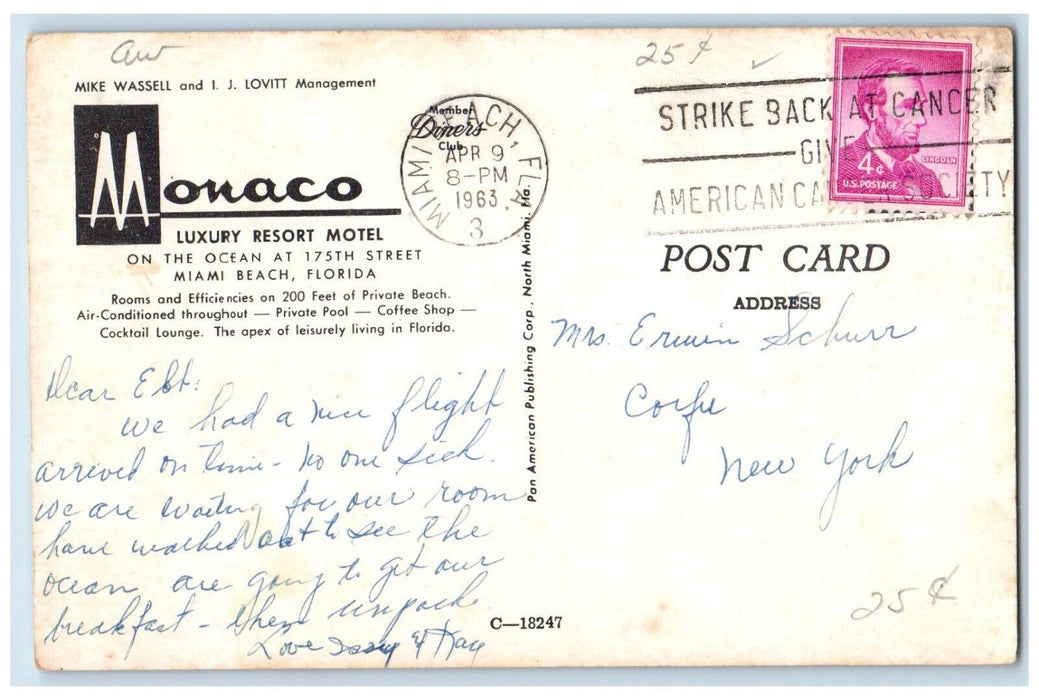 aw
MIKE WASSELL and I. J. LOVITT Management
Monaco
LUXURY RESORT MOTEL
ON THE OCEAN AT 175TH STREET
MIAMI BEACH, FLORIDA
Rooms and Efficiencies on 200 Feet of Private Beach.
Air-Conditioned throughout — Private Pool — Coffee Shop —
Cocktail Lounge. The apex of leisurely living in Florida.
Member
Diners
Club
MIAMI BEACH, FLA.
APR 9
8-PM
1963
3
Dear Ebt:
we had a nice flight
arrived on time - no one sick.
we are waiting for our room
have walked out to see the
ocean are going to get our
breakfast - then unpack
Love & Kay
Pan American Publishing Corp., North Miami, Fla.
C—18247
25¢
STRIKE BACK AT CANCER
GIVE
AMERICAN CANCER SOCIETY
4¢
LINCOLN
U.S. POSTAGE
POST CARD
ADDRESS
Mrs. Erwin Schurr
Corfu
New York
25¢